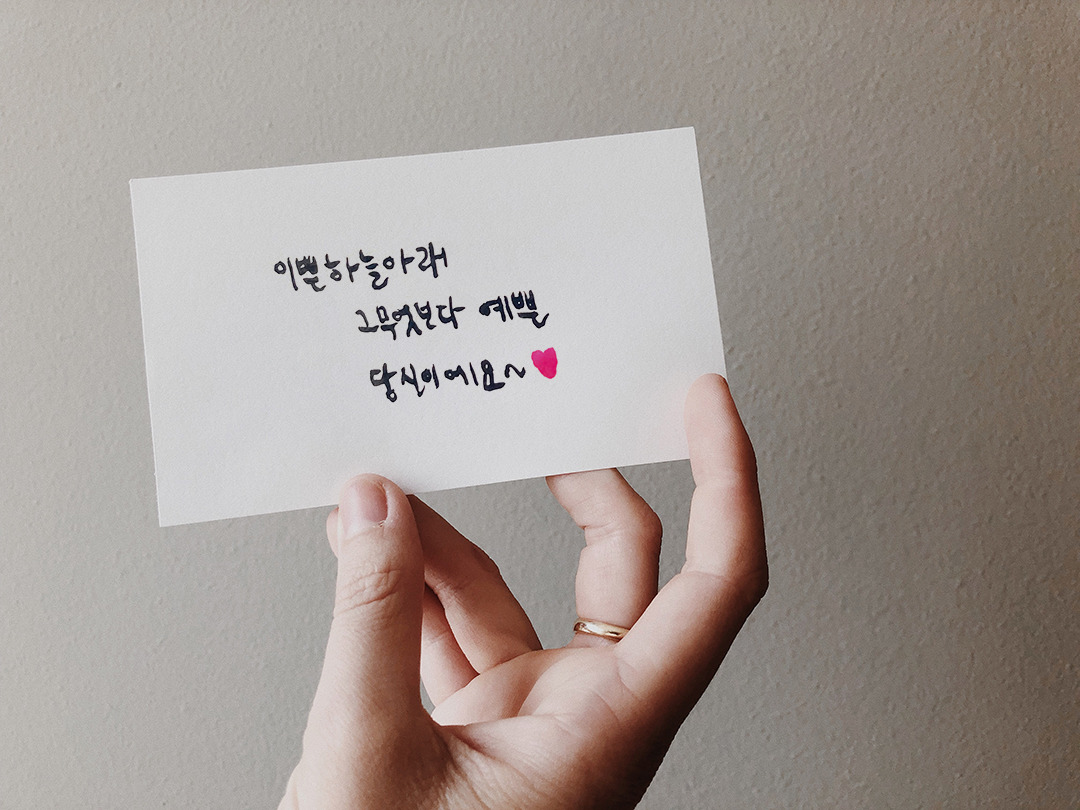 이쁜하늘아래
그무엇보다 예쁠
당신이에요~♥